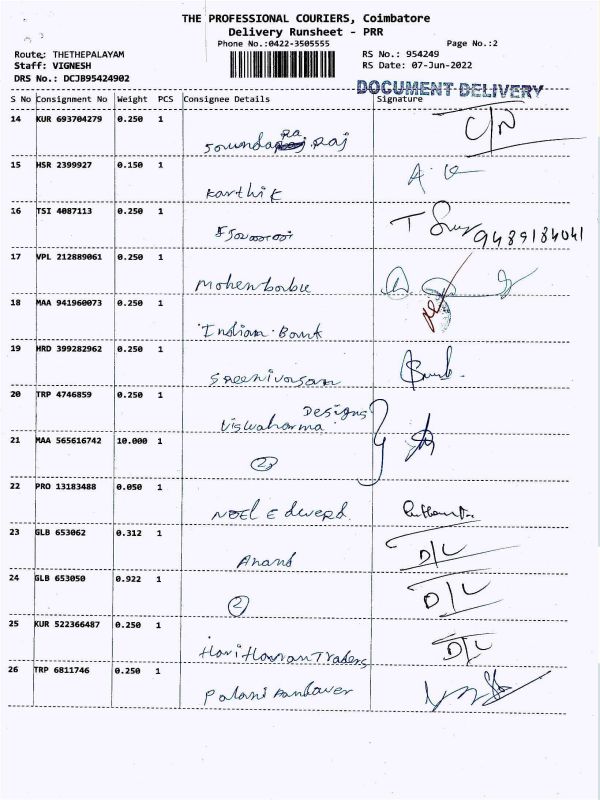 THE PROFESSIONAL COURIERS, Coimbatore
Delivery Runsheet - PRR
Phone No.:0422-3505555
Page No.:2
Route: THETHEPALAYAM
RS No.: 954249
Staff: VIGNESH
RS Date: 07-Jun-2022
DRS No.: DCJB95424902
DOCUMENT DELIVERY
S No Consignment No Weight PCS Consignee Details Signature
14 KUR 693704279 0.250 1
C/N
15 HSR 2399927 0.150 1
Karthik
16 TSI 4087113 0.250 1
9489184041
17 VPL 212889061 0.250 1
Mohenbabu
18 MAA 941960073 0.250 1
Indian Bank
19 HRD 399282962 0.250 1
Sreenivasan
20 TRP 4746859 0.250 1
Designs
Viswaharma
21 MAA 565616742 10.000 1
2
22 PRO 13183488 0.050 1
NOEL Edwerd
23 GLB 653062 0.312 1
Anand D/L
24 GLB 653050 0.922 1
2 D/L
25 KUR 522366487 0.250 1
Hari Haran Traders D/L
26 TRP 6811746 0.250 1
Palani